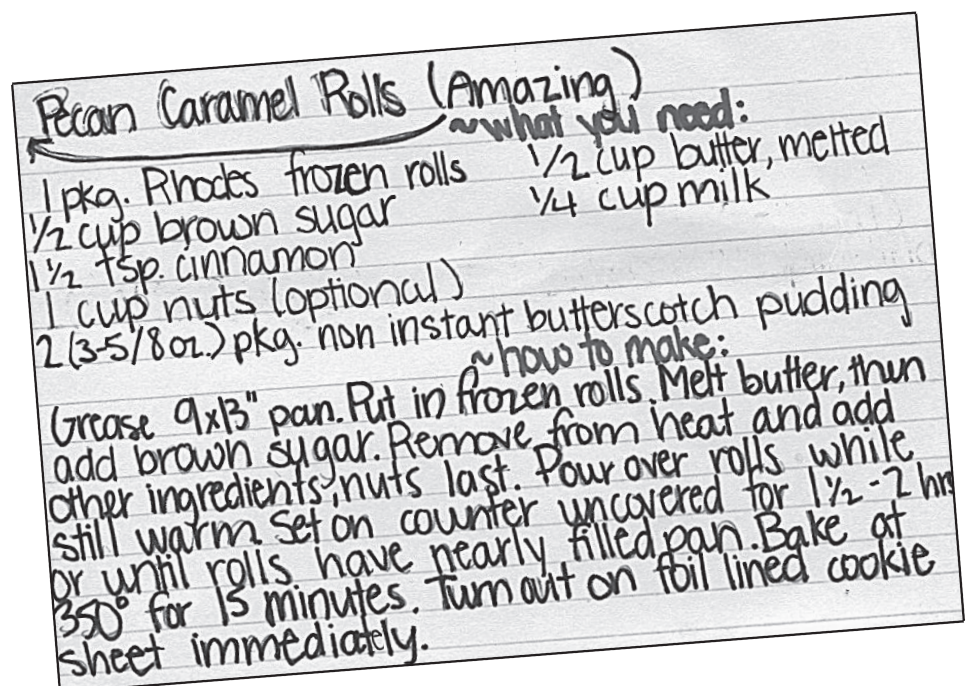 Pecan Caramel Rolls (Amazing)
~what you need:
1 pkg. Rhodes frozen rolls 1/2 cup butter, melted
1/2 cup brown sugar 1/4 cup milk
1 1/2 tsp. cinnamon
1 cup nuts (optional)
2 (3-5/8 oz.) pkg. non instant butterscotch pudding
~how to make:
Grease 9x13" pan. Put in frozen rolls. Melt butter, then
add brown sugar. Remove from heat and add
other ingredients, nuts last. Pour over rolls while
still warm. Set on counter uncovered for 1 1/2 - 2 hrs
or until rolls have nearly filled pan. Bake at
350° for 15 minutes. Turn out on foil lined cookie
sheet immediately.